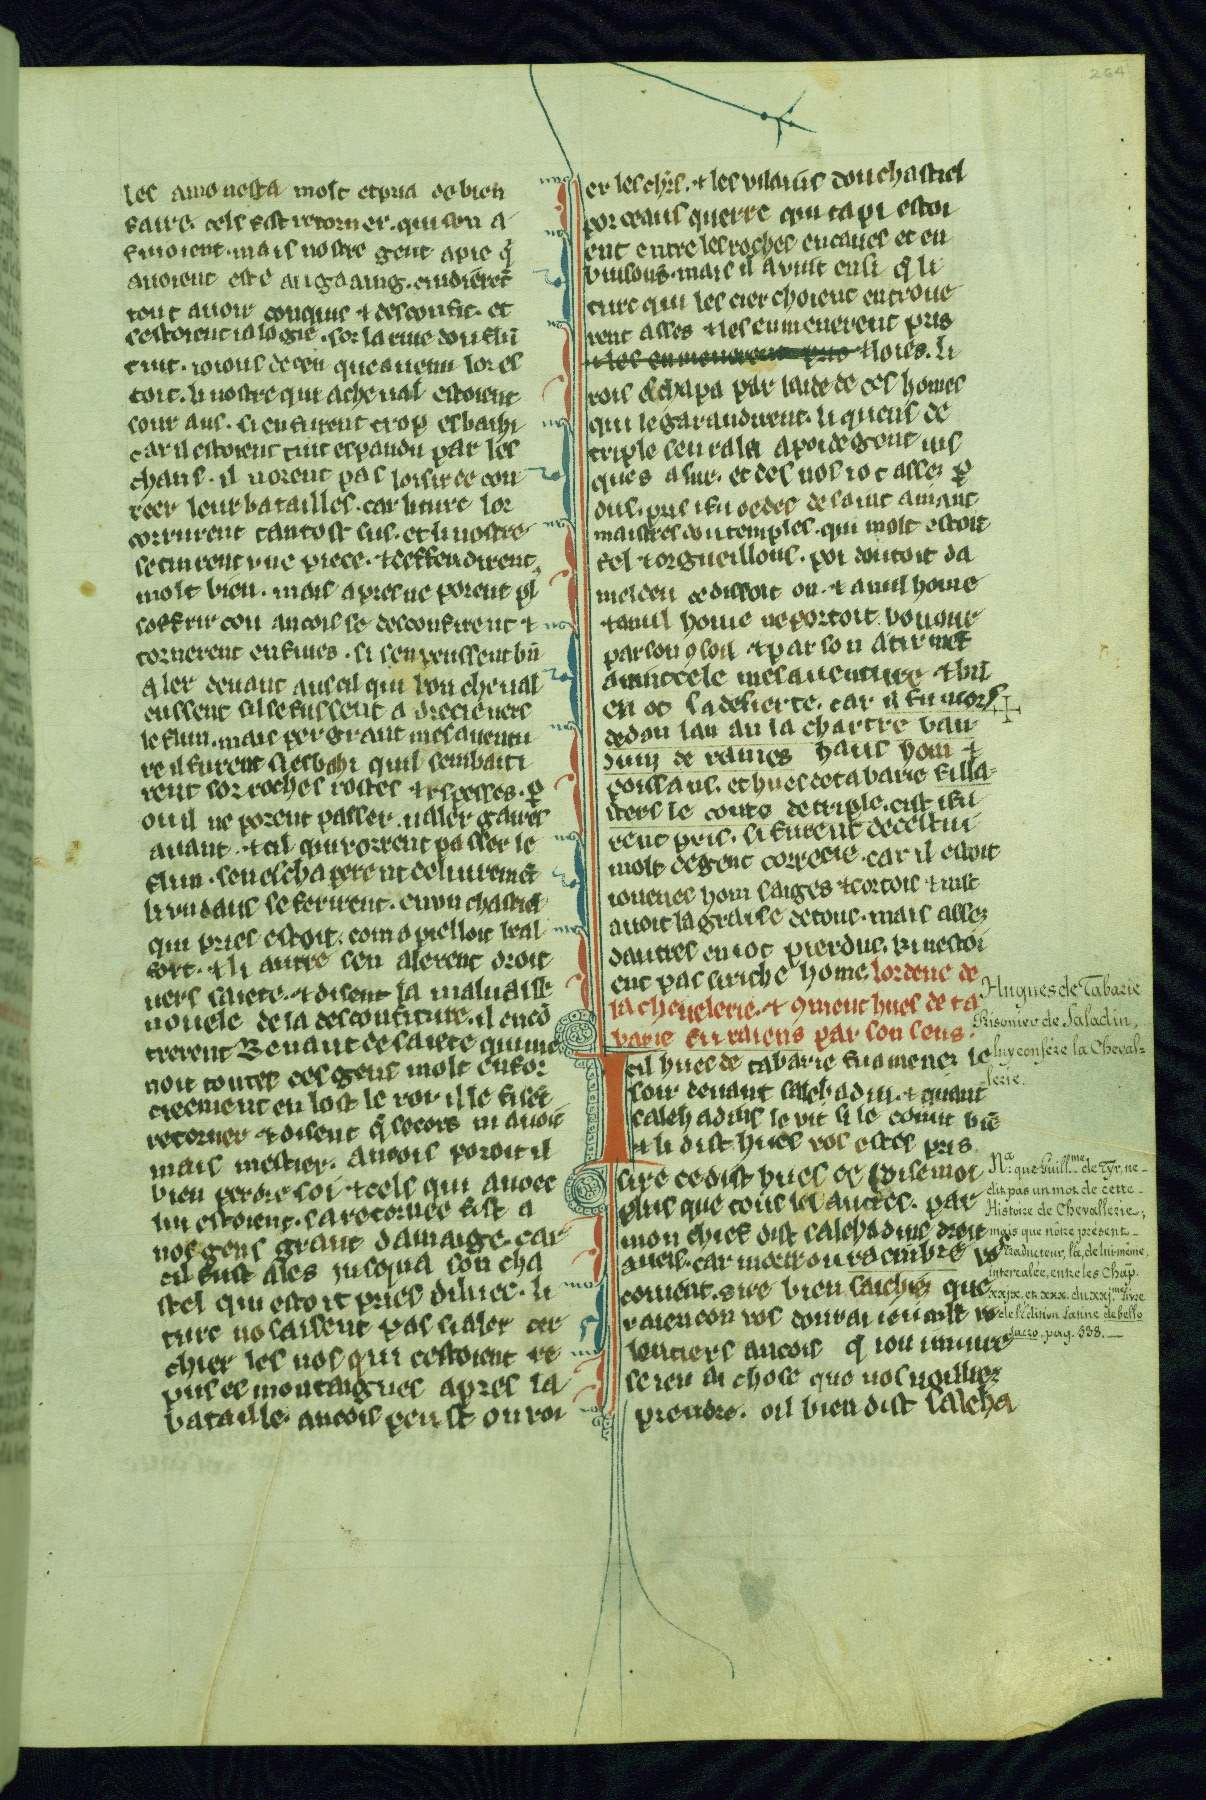 264
les amonesta molt et pria de bien
faire. cels fist retorner. qui sen a
fuioient. mais nostre gent a pie q̃
avoient este au gaaing. cuidierēt
tout avoir conquis & desconfit. et
sestoient ia logie. sor la rive dou flū
tuit. ioious de ceu que avenu lor es
toit. li nostre qui a cheval estoient
sour aus. si en furent trop esbahi
car il estoient tuit espandu par les
chans. il norent pas loisir de con
reer leur batailles. car li turc lor
corrurent tantost sus. et li nostre
se tinrent une piece. & deffendirent
molt bien. mais apres ne porent pl̃
soffrir cou ancois se desconfirent &
tornerent en fuies. si sen peussent bñ
aler devant aus cil qui bon cheval
eussent sil se fussent a drecie vers
le flun. mais por grant mesaventu
re il furent si esbahi quil senbati
rent sor roches rostes & espesses. p̱
ou il ne porent passer. n aler gaires
avant. & cil qui porrent passer le
flun. sen eschaperent delivremēt
li un daus se ferirent. en un chastiel
qui pries estoit. com apielloit bial
fort. & li autre sen alerent droit
vers saiete. & disent la malvaise
novele de la desconfiture. il encō
trerent Renaut de saiete qui me
noit toutes ces gens molt esfor
cieement en lost le roi il le fisēt
retorner & disent q̃ secors ni avoit
mais mestier. ancois poroit il
bien perdre soi & cels qui avoec
lui estoient. sa retornee fist a
nos gens grant damaige. car
cil fust ales jusqua son cha
stel qui estoit pries diluec. li
turc no saissent pas si aler cer
chier les nos qui cestoient re
pus es montaignes apres la
bataille. ancois peust on roi
er les chr̄s. & les vilains dou chastiel
por ceaus querre qui tapi estoi
ent entre les roches en caves et en
buisons. mais il avint ensi q̃ li
turc qui les cierchoient en trove
rent asses & les enmenerent pris
& les enmenerent pris & loies. li
rois eschapa par laide de ces homes
qui le garandirent. li queus de
triple sen rala a poi de gent ius
ques a sur. et des nos i ot asses p̱
dus. pris i fu oedes de saint amant
maistres dou temples. qui molt estoit
fel & orgueillous. poi doutoit da
meldeu ce dissoit on. & a nul home
& a nul home ne portoit bonour
par son ɔsoil & par son atirmēt
avint cele mesaventure & bñ
en ot sa desierte. car il fu mors
dedou lan an la chartre bau
duin de rames haus hom &
poissans. et hues de tabarie fillas
sters le conte de triple. cist i fu
rent pris. si furent de cestui
molt de gent correcie. car il estoit
iouenes hom saiges & cortois & mlt
avoit la graise de tous. mais assez
dautres en i ot pierdus. ki nestoi
ent pas si riche home lordene de
la chevelerie. & ɔment hues de ta
barie fu raiens par son sens.
Cil hues de tabarie fu amenes le
soir devant salehadin. & quant
salehadins le vit si le conut biē
& li dist hues vos estes pris
sire ce dist hues ce poise moi
plus que tous les autres. par
mon chief dist salehadins droit
avés. car mort ou raembre vos
covient. sire bien saichiez que
raiencon vos donrai iou mlt vo
lentiers ancois q̃ iou muire
se ien ai chose que vos voilliez
prendre. oil bien dist saleha
Hugues de Tabarie
Prisonier de Saladin,
luy confére la Cheval-
lerie.
Na. que Guill.me de Tyr, ne
dit pas un mot de cette
Histoire de Chevallerie;
mais que nôtre présent
Traducteur, l'a, de lui-même,
intercalée, entre les Chap.
xxjx. et xxx. du xxj.me Livre
de l'édition Latine de bello
sacro. pag. 538.